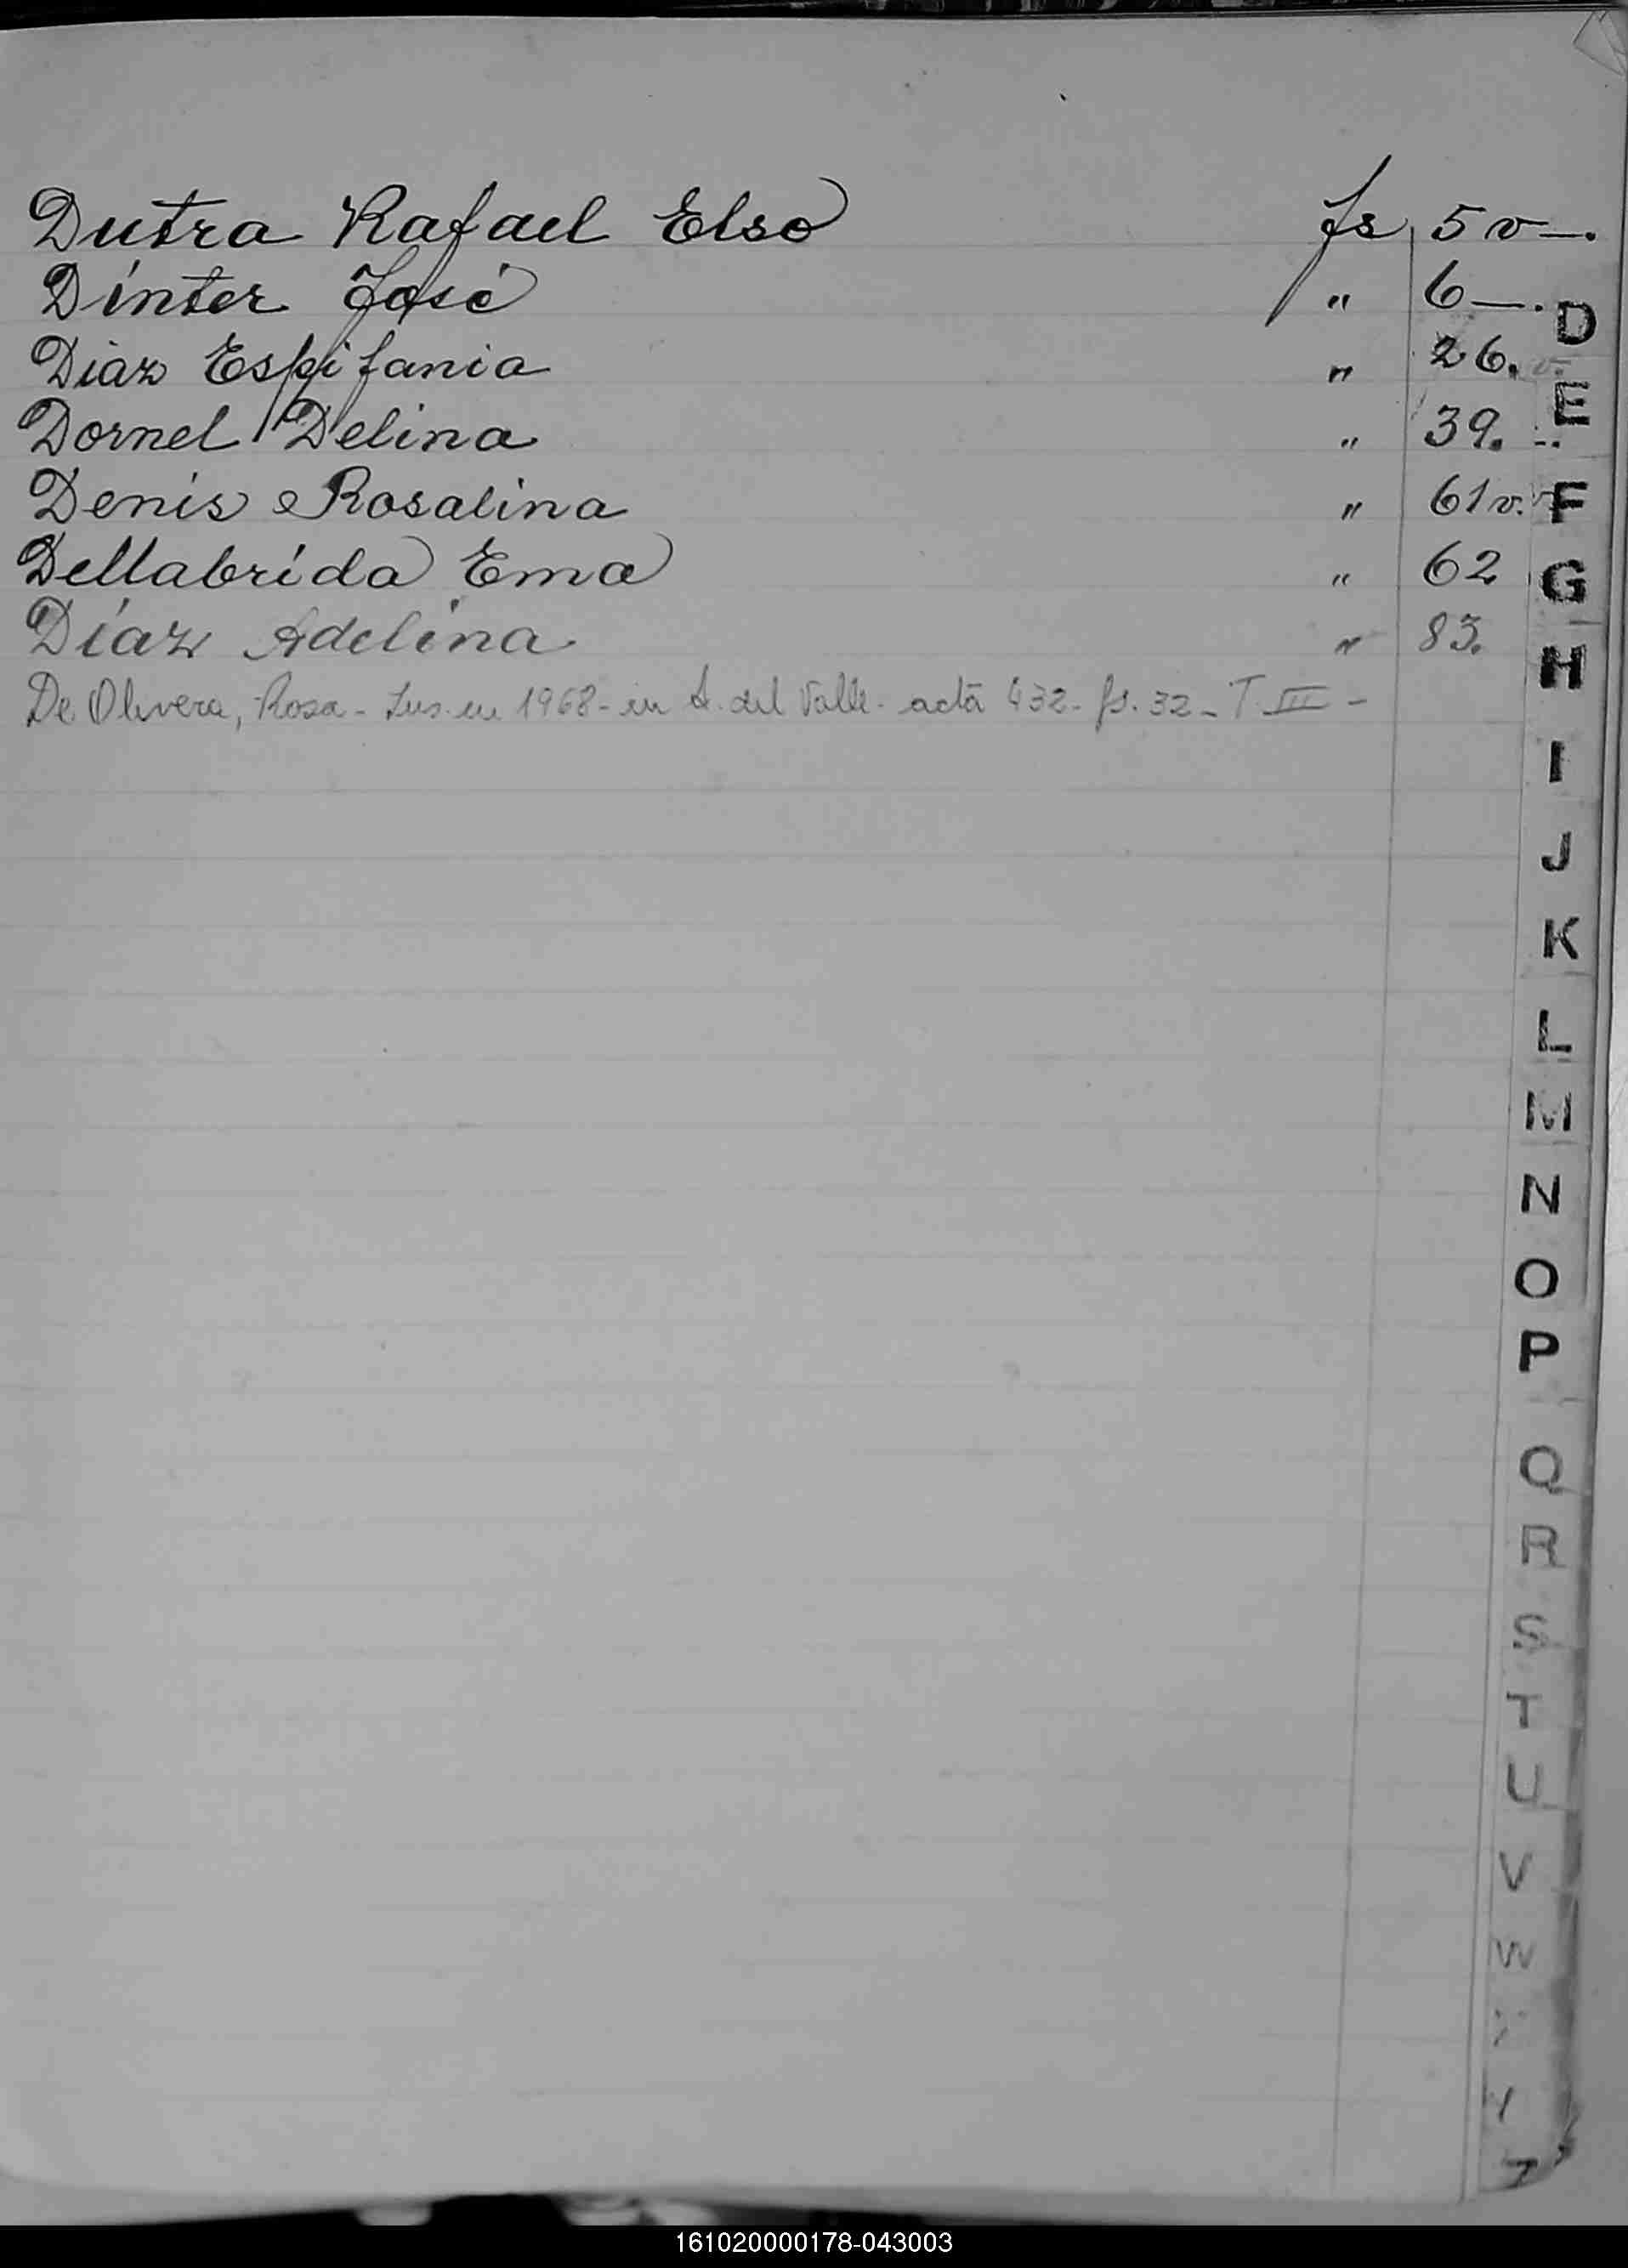 Dutra Rafael Elso fs 5 v—.
Dinter José " 6—.
Diaz Espifania " 26.
Dornel Delina " 39.
Denis Rosalina " 61v.
Dellabrida Ema " 62
Díaz Adelina " 83.
De Olivera, Rosa - Ins. en 1968 - en A. del Valle - acta 432 - fs. 32 - T. III -
D
E
F
G
H
I
J
K
L
M
N
O
P
Q
R
S
T
U
V
W
Y
Z
161020000178-043003